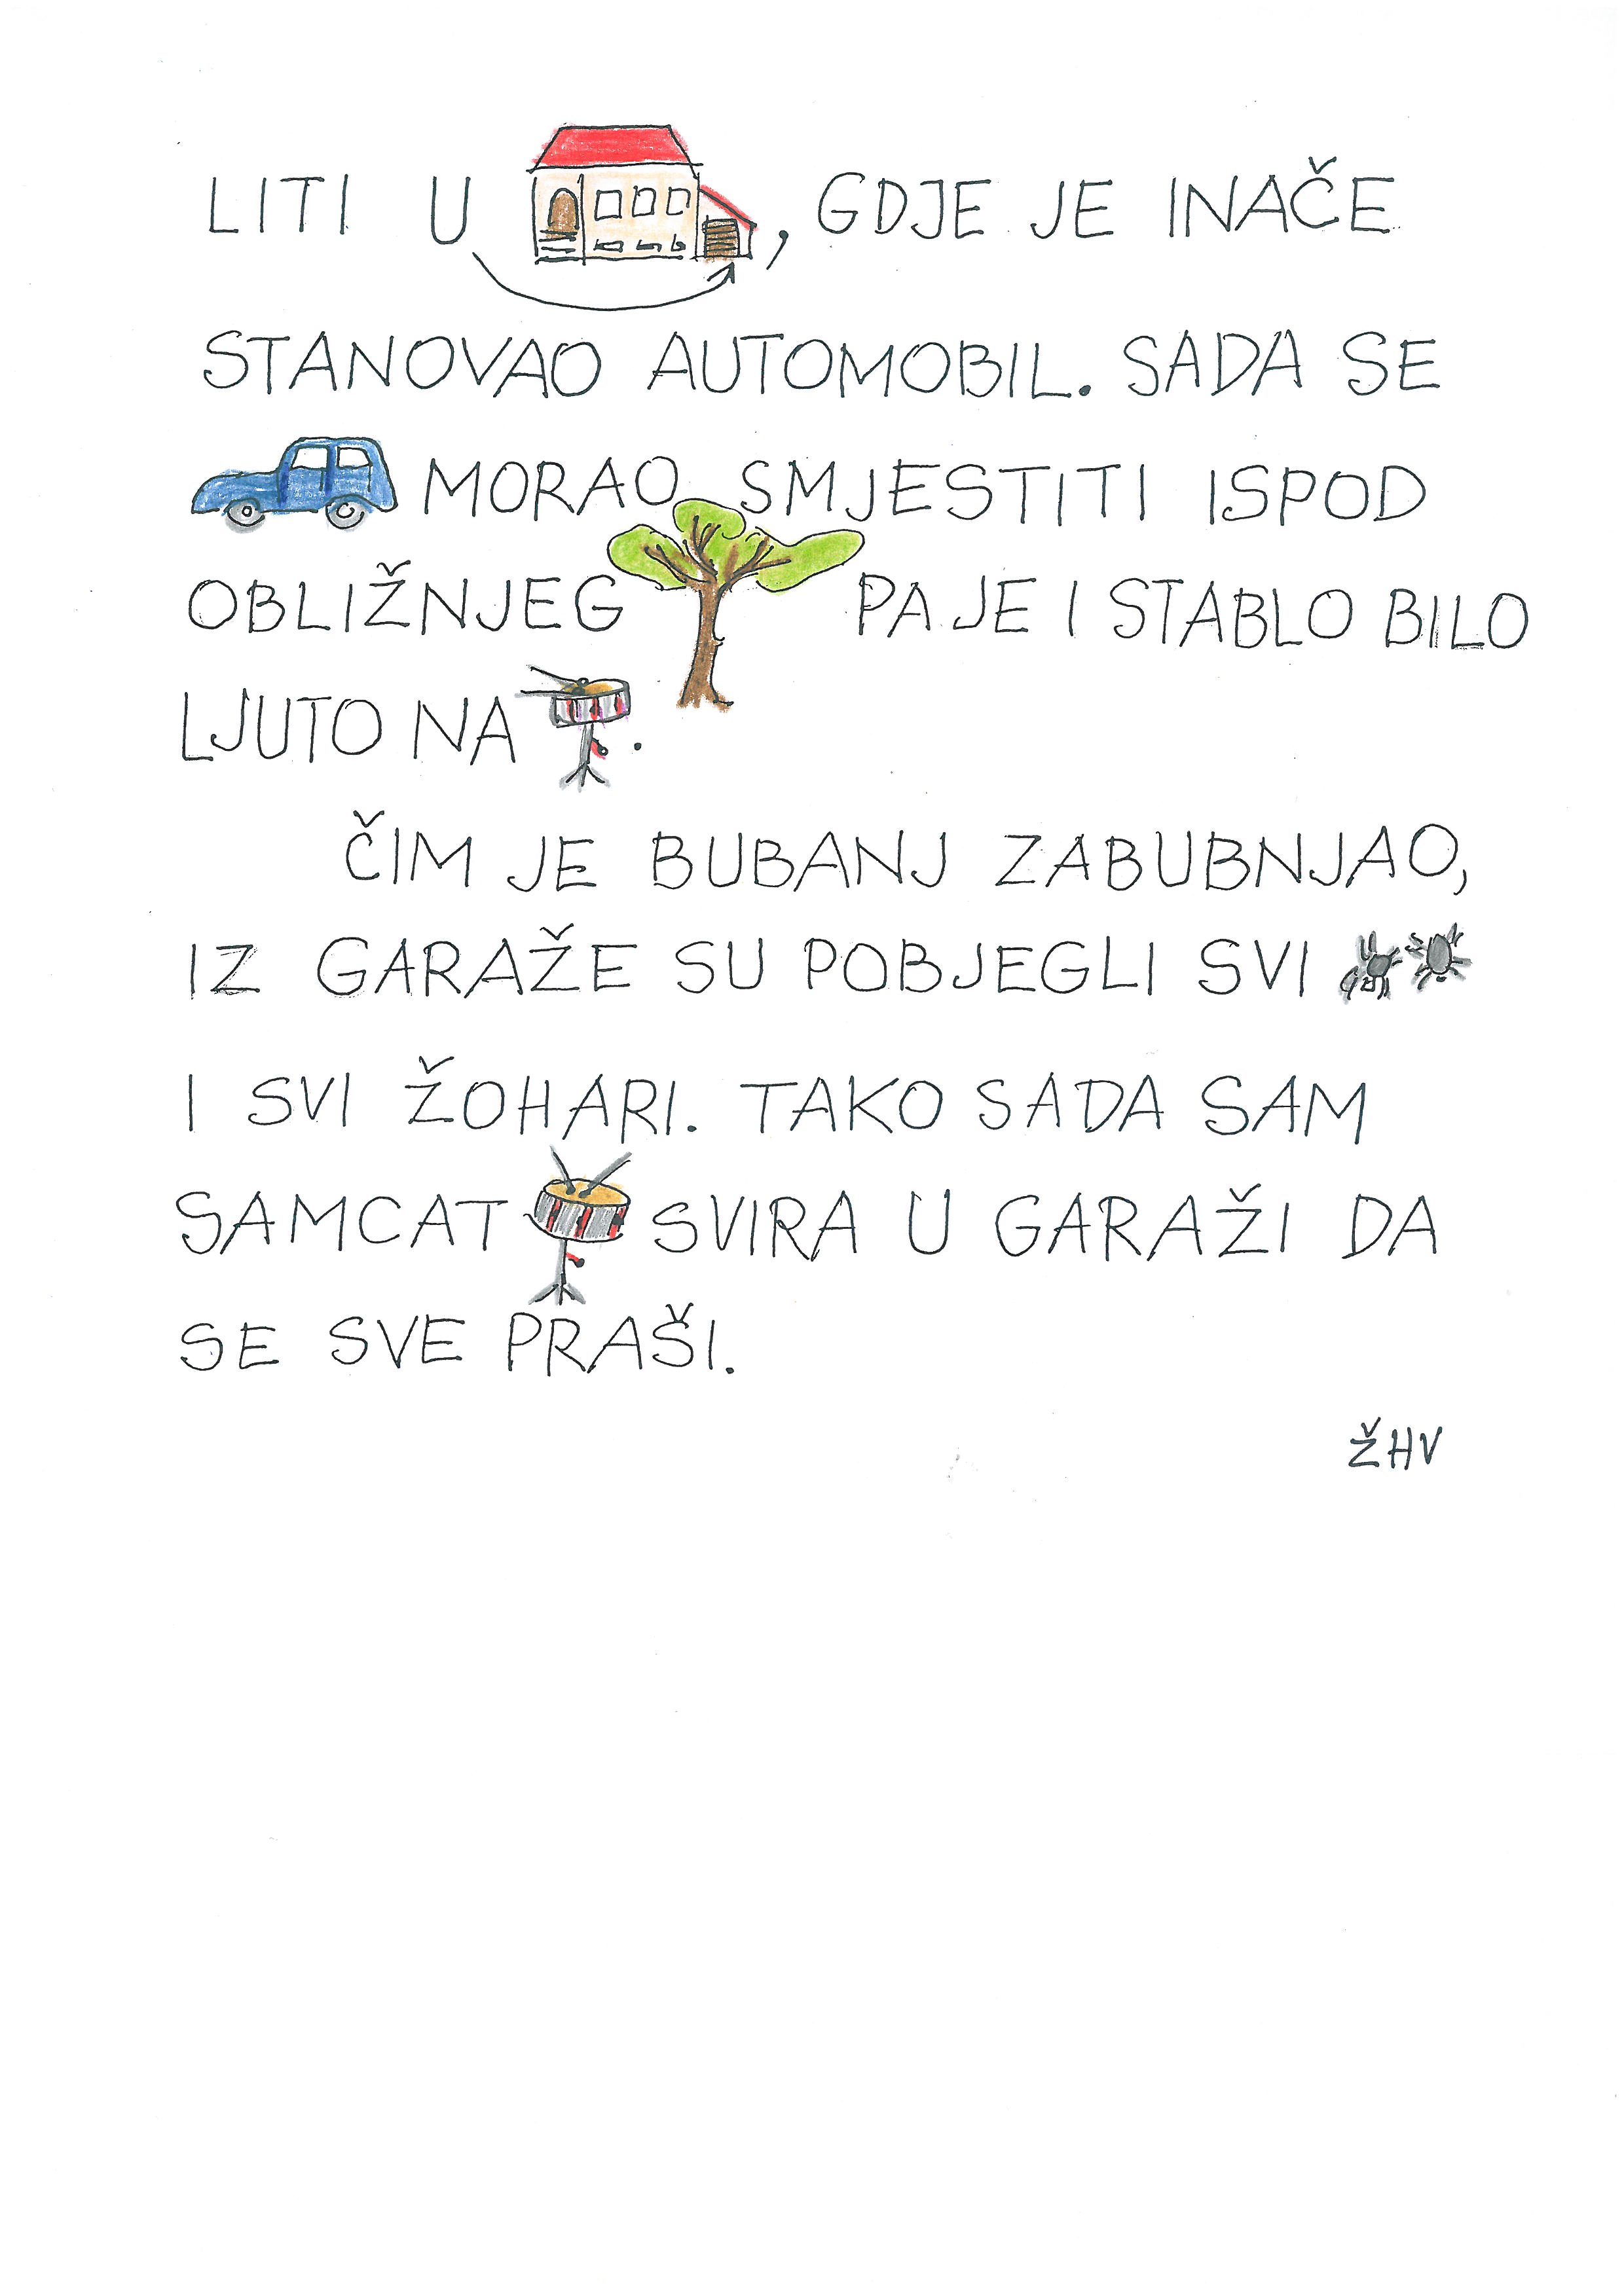 LITI U , GDJE JE INAČE
STANOVAO AUTOMOBIL. SADA SE
MORAO SMJESTITI ISPOD
OBLIŽNJEG PA JE I STABLO BILO
LJUTO NA .
ČIM JE BUBANJ ZABUBNJAO,
IZ GARAŽE SU POBJEGLI SVI
I SVI ŽOHARI. TAKO SADA SAM
SAMCAT SVIRA U GARAŽI DA
SE SVE PRAŠI.
ŽHV